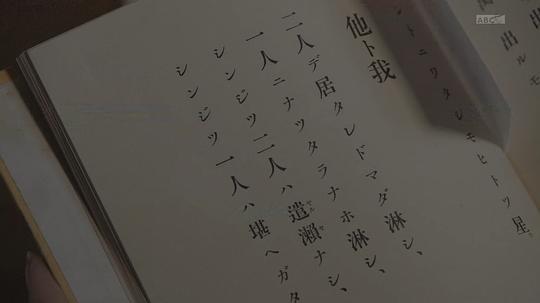 ABC
出ルモ
ントニワタレモヒトツ星
他ト我
二人デ居タレドマダ淋シ、
一人ニナツタラナホ淋シ、
シンジツ二人ハ遣瀬ナシ、
シンジツ一人ハ堪ヘガタ